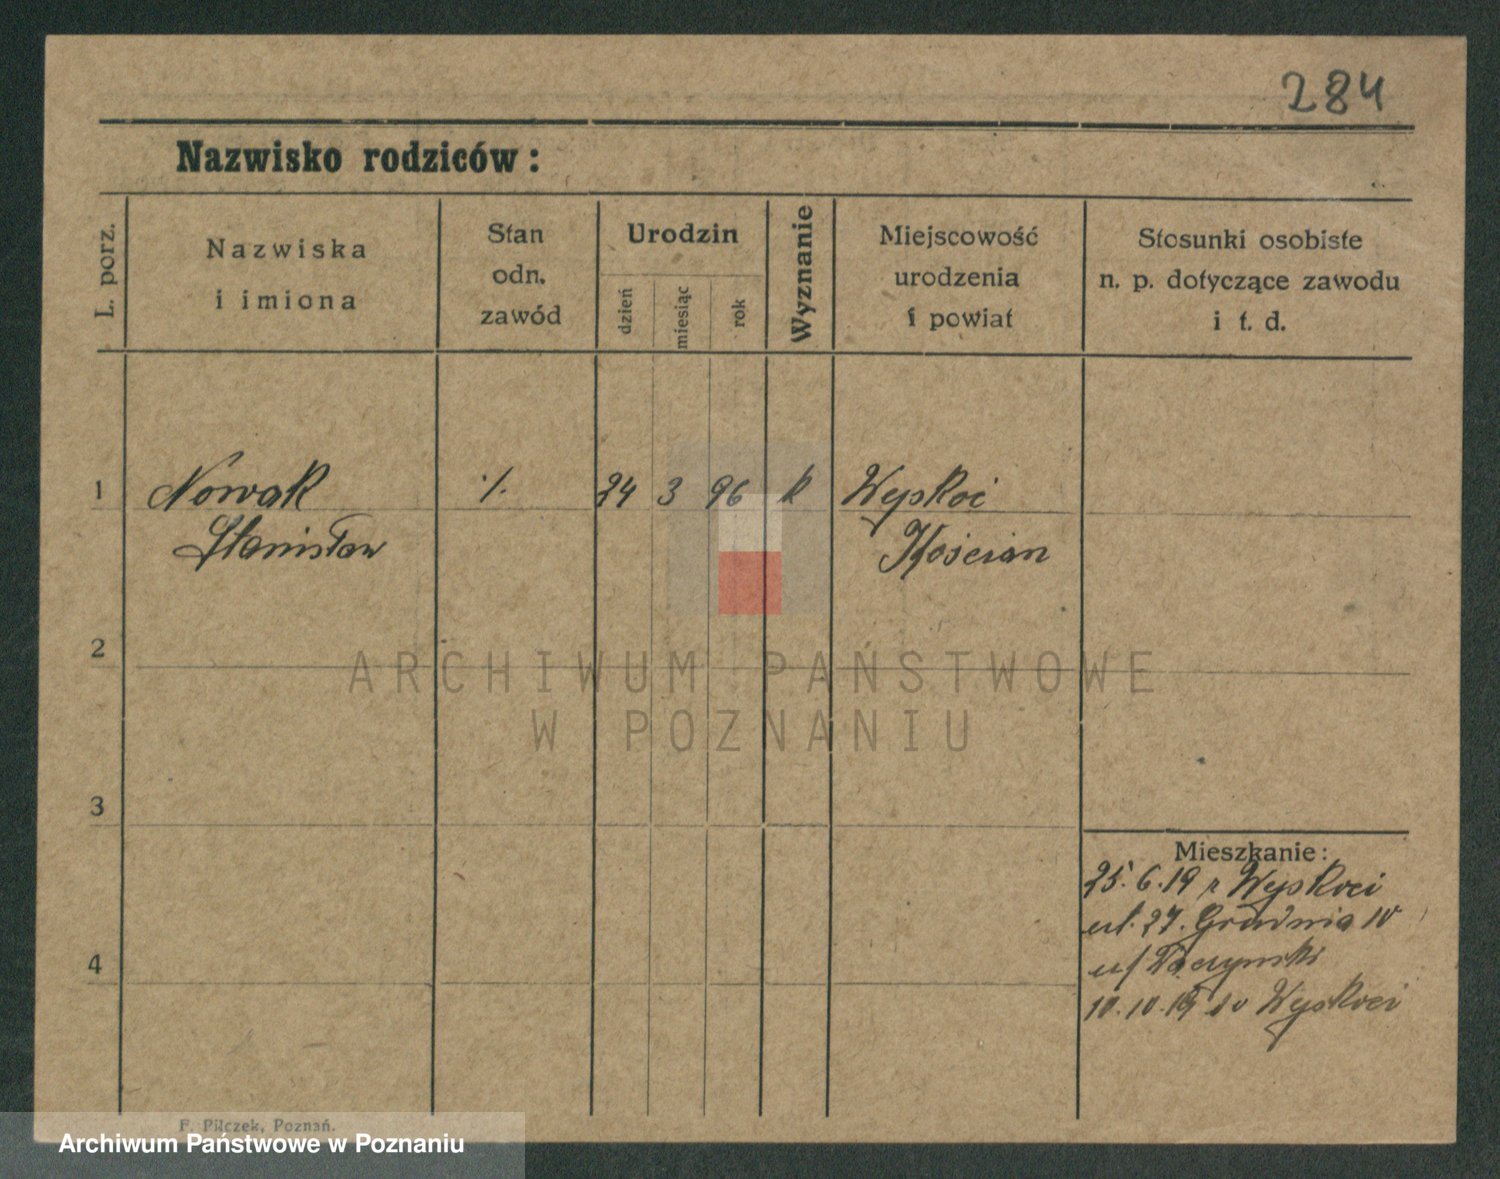 284
Nazwisko rodziców:
L. porz.
Nazwiska
i imiona
Stan
odn.
zawód
Urodzin
dzień
miesiąc
rok
Wyznanie
Miejscowość
urodzenia
i powiat
Stosunki osobiste
n. p. dotyczące zawodu
i t. d.
1
Nowak
Stanisław
·/.
24
3
96
k
Wyskoć
Kościan
2
3
4
Mieszkanie:
25.6.19 z Wyskoci
ul. 27. Grudnia 10
u/
10.10.19 do Wyskoci
F. Pilczek, Poznań.
ARCHIWUM PAŃSTWOWE
W POZNANIU
Archiwum Państwowe w Poznaniu